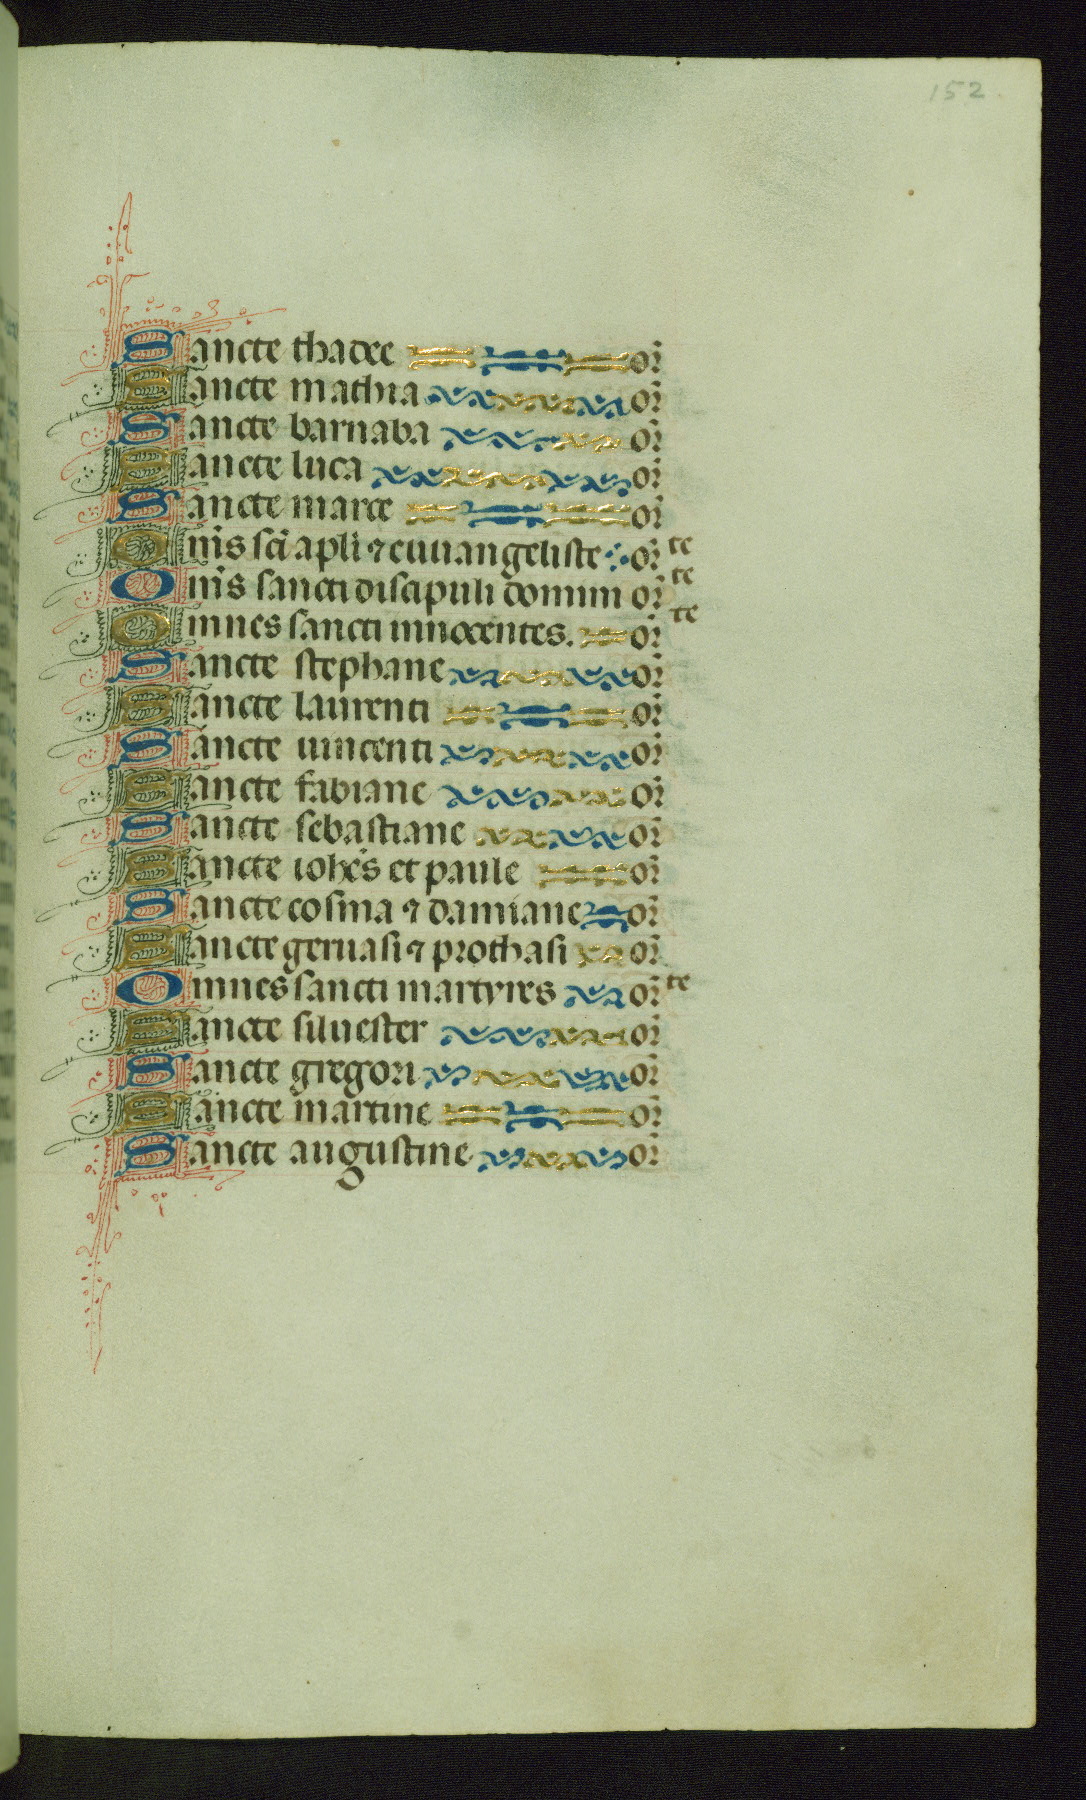 152.
Sancte thadee or̄
Sancte mathia or̄
Sancte barnaba or̄
Sancte luca or̄
Sancte marce or̄
Om̄s sc̄i apl̄i ⁊ euuangeliste or̄ te
Om̄s sancti discipuli domini or̄ te
Omnes sancti innocentes. or̄ te
Sancte stephane or̄
Sancte laurenti or̄
Sancte vincenti or̄
Sancte fabiane or̄
Sancte sebastiane or̄
Sancte ioh̄es et paule or̄
Sancte cosma ⁊ damiane or̄
Sancte geruasi ⁊ prothasi or̄
Omnes sancti martyres or̄ te
Sancte siluester or̄
Sancte gregori or̄
Sancte martine or̄
Sancte augustine or̄